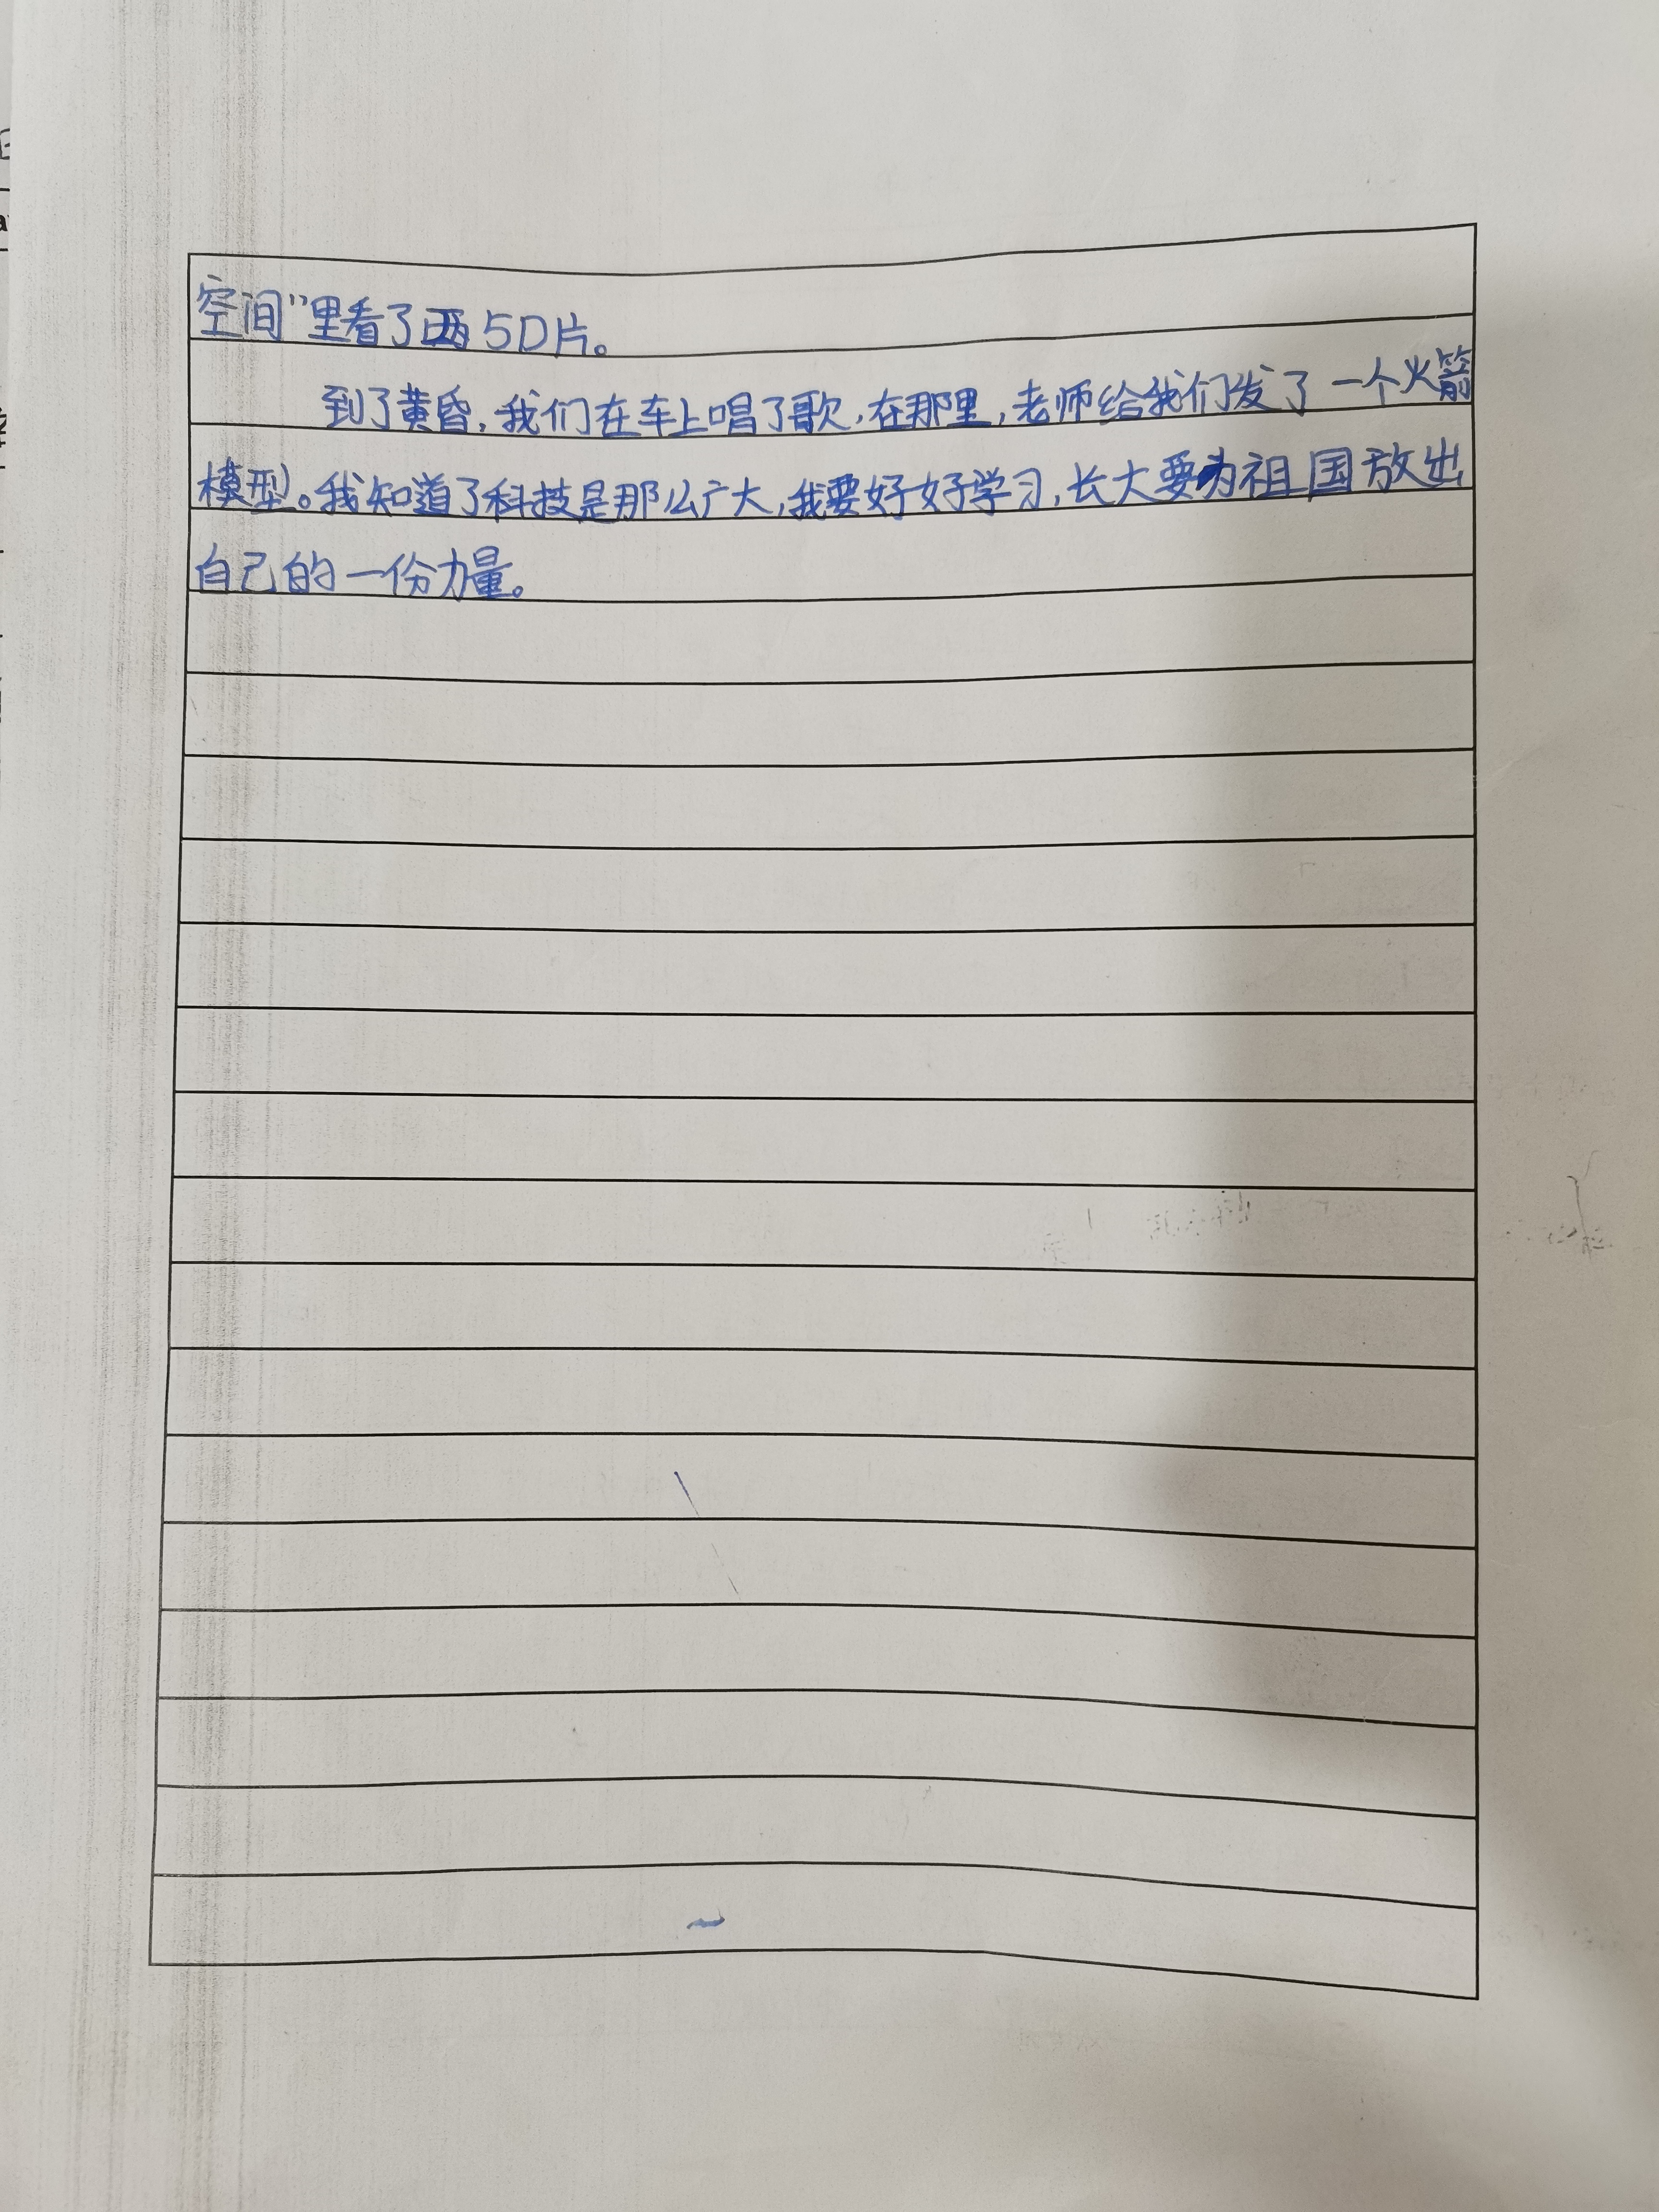 空间”里看了两5D片。
到了黄昏,我们在车上唱了歌,在那里,老师给我们发了一个火箭
模型。我知道了科技是那么广大,我要好好学习,长大要为祖国放出
自己的一份力量。